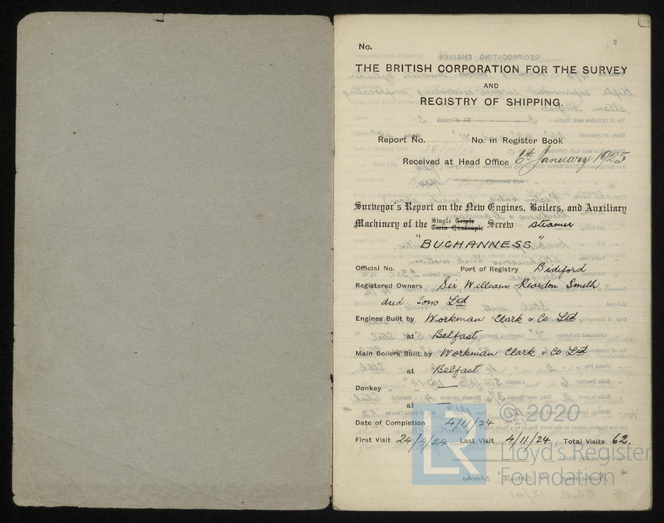 No.
THE BRITISH CORPORATION FOR THE SURVEY
AND
REGISTRY OF SHIPPING.
Report No. No. in Register Book
Received at Head Office 6th January 1925
Surveyor's Report on the New Engines, Boilers, and Auxiliary
Machinery of the Single Triple Twin Quadruple Screw Steamer
"BUCHANNESS"
Official No. Port of Registry Bideford
Registered Owners Sir William Reardon Smith
and Sons Ltd
Engines Built by Workman Clark & Co Ltd
at Belfast
Main Boilers Built by Workman Clark & Co Ltd
at Belfast
Donkey " " —
at —
Date of Completion 4/11/24
First Visit 24/4/24 Last Visit 4/11/24 Total Visits 62.
LR
© 2020
Lloyd's Register
Foundation